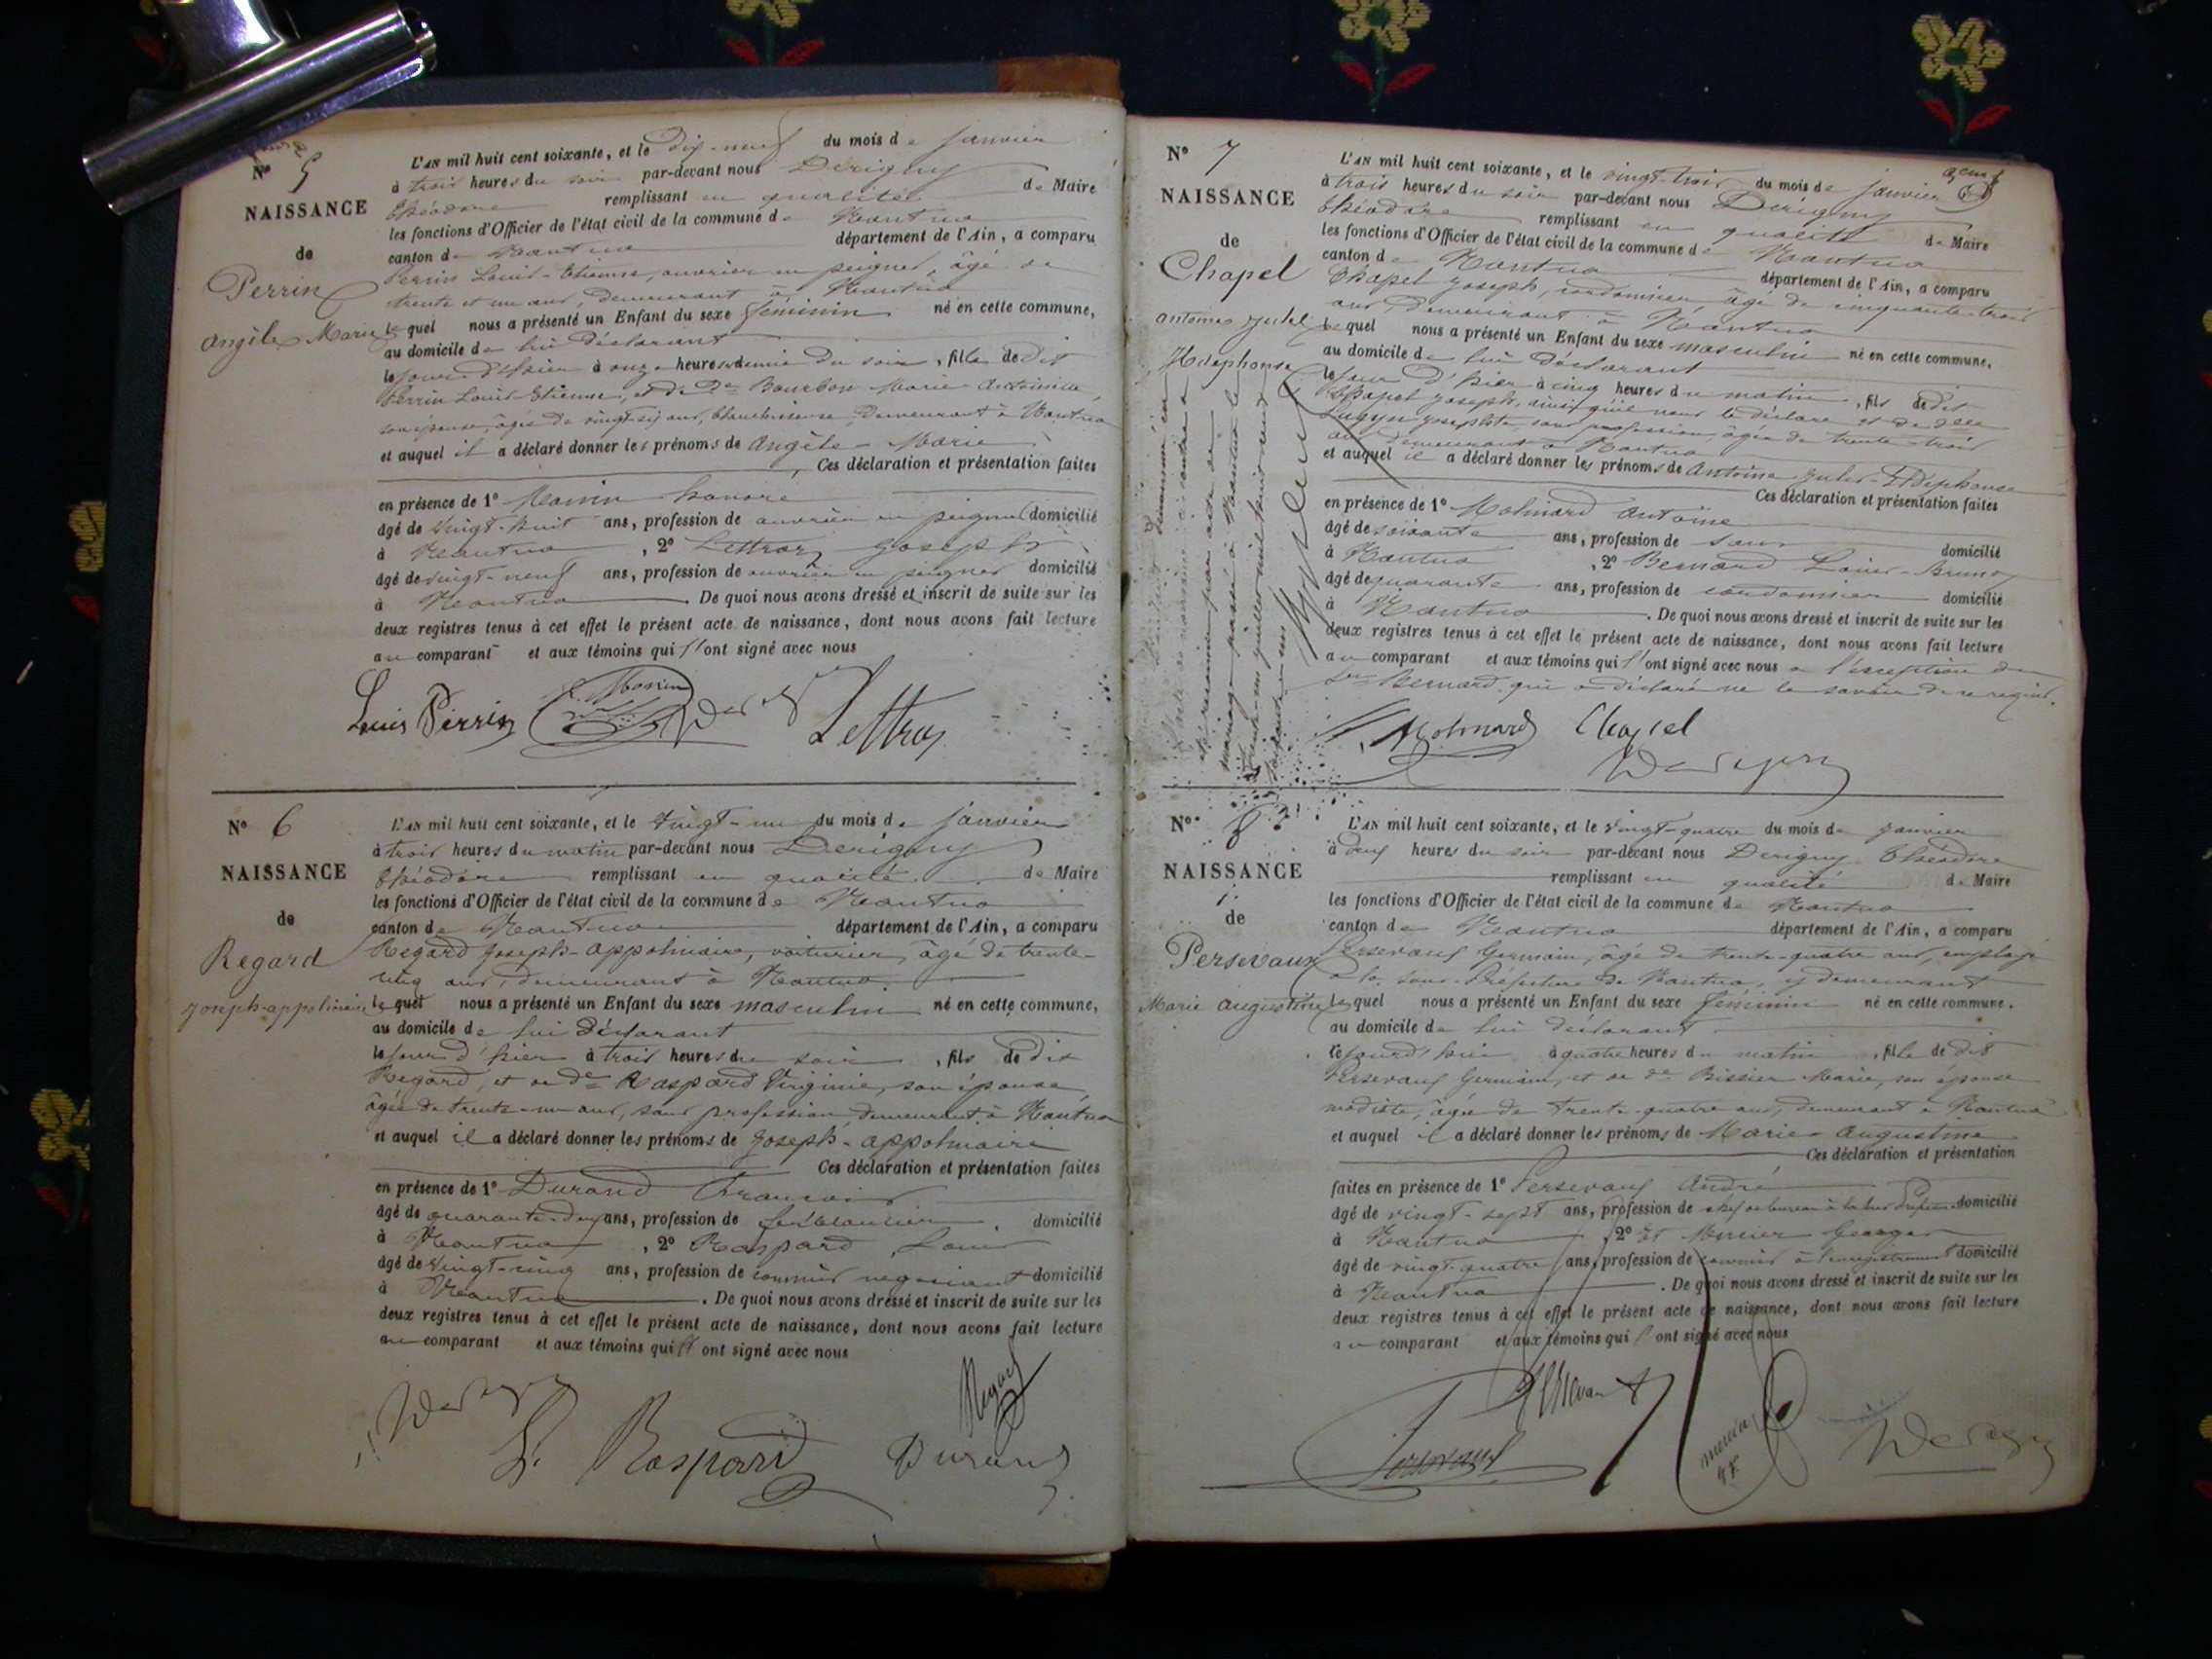 N° 5
NAISSANCE
de
Perrin
Angèle Marie
L'AN mil huit cent soixante, et le dix-neuf du mois de janvier
à trois heures du soir par-devant nous Derigny
Théodore remplissant en qualité de Maire
les fonctions d'Officier de l'état civil de la commune de Nantua
canton de Nantua département de l'Ain, a comparu
Perrin Louis-Etienne, ouvrier en peignes, âgé de
trente et un ans, demeurant à Nantua
lequel nous a présenté un Enfant du sexe féminin né en cette commune,
au domicile de lui déclarant
le jour d'hier à onze heures et demie du soir, fille de dit
Perrin Louis Etienne, et de De Bourbon Marie Antoinette
son épouse, âgée de vingt-six ans, blanchisseuse, demeurant à Nantua
et auquel il a déclaré donner les prénoms de Angèle-Marie
Ces déclaration et présentation faites
en présence de 1° Morin honoré
âgé de vingt-huit ans, profession de ouvrier en peignes domicilié
à Nantua, 2° Lettroz Joseph
âgé de vingt-neuf ans, profession de ouvrier en peignes domicilié
à Nantua. De quoi nous avons dressé et inscrit de suite sur les
deux registres tenus à cet effet le présent acte de naissance, dont nous avons fait lecture
au comparant et aux témoins qui l'ont signé avec nous
Louis Perrin Morin Lettroz
N° 6
NAISSANCE
de
Regard
Joseph-appolinaire
L'AN mil huit cent soixante, et le vingt-un du mois de janvier
à trois heures du matin par-devant nous Derigny
Théodore remplissant en qualité de Maire
les fonctions d'Officier de l'état civil de la commune de Nantua
canton de Nantua département de l'Ain, a comparu
Regard Joseph-appolinaire, voiturier, âgé de trente-
cinq ans, demeurant à Nantua
lequel nous a présenté un Enfant du sexe masculin né en cette commune,
au domicile de lui déclarant
le jour d'hier à trois heures du soir, fils de dit
Regard, et de De Raspard Virginie, son épouse
âgée de trente-un ans, sans profession, demeurant à Nantua
et auquel il a déclaré donner les prénoms de Joseph-appolinaire
Ces déclaration et présentation faites
en présence de 1° Durand François
âgé de quarante-deux ans, profession de ferblantier, domicilié
à Nantua, 2° Raspard Louis
âgé de vingt-cinq ans, profession de commis négociant domicilié
à Nantua. De quoi nous avons dressé et inscrit de suite sur les
deux registres tenus à cet effet le présent acte de naissance, dont nous avons fait lecture
au comparant et aux témoins qui l'ont signé avec nous
Regard
L. Raspard Durand
N° 7
NAISSANCE
de
Chapel
antoine Jules
Ildephonse
L'AN mil huit cent soixante, et le vingt-trois du mois de janvier
à trois heures du soir par-devant nous Derigny
Théodore remplissant en qualité de Maire
les fonctions d'Officier de l'état civil de la commune de Nantua
canton de Nantua département de l'Ain, a comparu
Chapel Joseph, cordonnier âgé de cinquante-trois
ans, demeurant à Nantua
lequel nous a présenté un Enfant du sexe masculin né en cette commune,
au domicile de lui déclarant
le jour d'hier à cinq heures du matin, fils de dit
Chapel Joseph, ainsi qu'il nous le déclare et de delle
Josephte sans profession, âgée de trente-trois
ans demeurant à Nantua
et auquel il a déclaré donner les prénoms de Antoine Jules-Ildephonse
Ces déclaration et présentation faites
en présence de 1° Molinard Antoine
âgé de soixante ans, profession de sans domicilié
à Nantua, 2° Bernard Louis-Bruno
âgé de quarante ans, profession de cordonnier domicilié
à Nantua. De quoi nous avons dressé et inscrit de suite sur les
deux registres tenus à cet effet le présent acte de naissance, dont nous avons fait lecture
au comparant et aux témoins qui l'ont signé avec nous à l'exception du
sr Bernard qui a déclaré ne le savoir de ce requis.
Molinard Chapel
N° 8
NAISSANCE
de
Persevaux
Marie augustine
L'AN mil huit cent soixante, et le vingt-quatre du mois de janvier
à deux heures du soir par-devant nous Derigny Théodore
remplissant en qualité de Maire
les fonctions d'Officier de l'état civil de la commune de Nantua
canton de Nantua département de l'Ain, a comparu
Persevaux Germain, âgé de trente-quatre ans, employé
à la sous-Préfecture de Nantua, y demeurant
lequel nous a présenté un Enfant du sexe féminin né en cette commune,
au domicile de lui déclarant
aujourd'hui à quatre heures du matin, fille de dit
Persevaux Germain, et de De Bissier Marie, son épouse
modiste, âgée de trente-quatre ans, demeurant à Nantua
et auquel il a déclaré donner les prénoms de Marie augustine
Ces déclaration et présentation
faites en présence de 1° Persevaux André
âgé de vingt-sept ans, profession de chef de bureau à la sous Préfecture domicilié
à Nantua, 2° et Mercier Georges
âgé de vingt-quatre ans, profession de commis à l'enregistrement domicilié
à Nantua. De quoi nous avons dressé et inscrit de suite sur les
deux registres tenus à cet effet le présent acte de naissance, dont nous avons fait lecture
au comparant et aux témoins qui l'ont signé avec nous
Persevaux